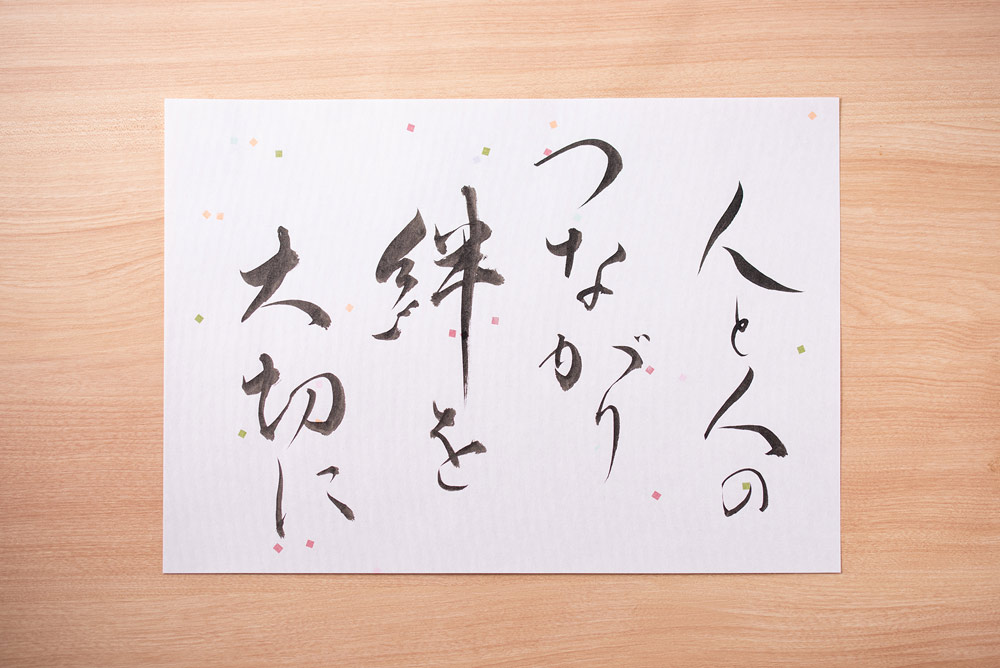 人と人の
つながり
絆を
大切に